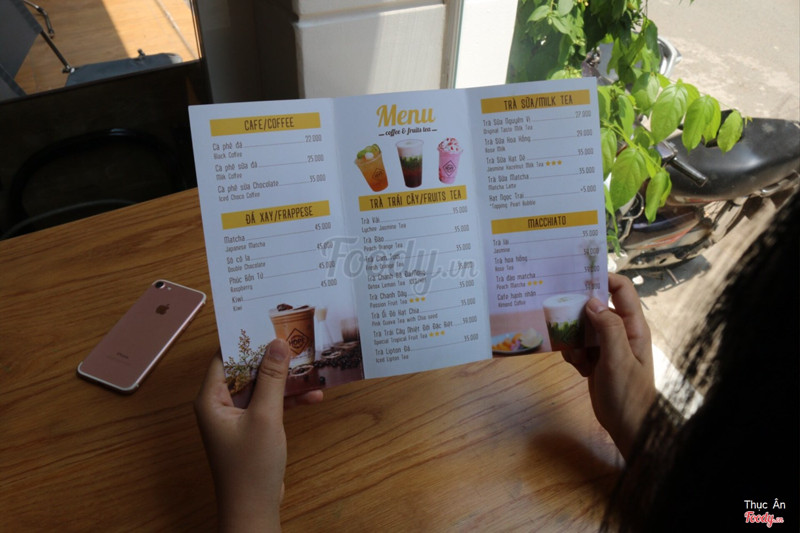 CAFE/COFFEE
Cà phê đá 22.000
Black Coffee
Cà phê sữa đá 25.000
Milk Coffee
Cà phê sữa Chocolate 35.000
Iced Choco Coffee
ĐÁ XAY/FRAPPESE
Matcha 45.000
Japanese Matcha
Sô cô la 45.000
Double Chocolate
Phúc Bồn Tử 45.000
Raspberry
Kiwi 45.000
Kiwi
Menu
coffee & fruits tea
TRÀ TRÁI CÂY/FRUITS TEA
Trà Vải 35.000
Lychee Jasmine Tea
Trà Đào 35.000
Peach Orange Tea
35.000
Trà Chanh
Detox Lemon Tea
Trà Chanh Dây 35.000
Passion Fruit Tea
Trà Ổi Đỏ Hạt Chia 35.000
Pink Guava Tea with Chia seed
Trà Trái Cây Nhiệt Đới Đặc Biệt 39.000
Special Tropical Fruit Tea
Trà Lipton Đá 25.000
Iced Lipton Tea
TRÀ SỮA/MILK TEA
Trà Sữa Nguyên Vị 27.000
Original Taste Milk Tea
Trà Sữa Hoa Hồng 29.000
Rose Milk
Trà Sữa Hạt Dẻ 35.000
Jasmine Hazelnut Milk Tea
Trà Sữa Matcha 35.000
Matcha Latte
Hạt Ngọc Trai +5.000
Topping Pearl Bubble
MACCHIATO
Trà lài 35.000
Jasmine
Trà hoa hồng
Rose Tea
Trà đào matcha
Peach Matcha
Cafe hạnh nhân
Almond Coffee
Foody.vn
iPhone
Thục Ân
Foody.vn